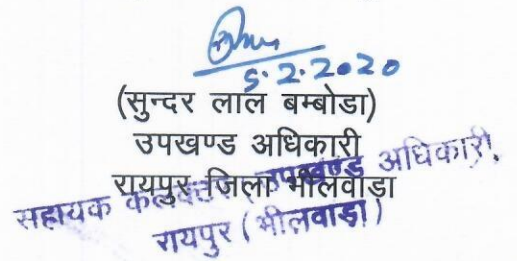 5.2.2020
(सुन्दर लाल बम्बोडा)
उपखण्ड अधिकारी
रायपुर जिला भीलवाडा
सहायक कलक्टर उपखण्ड अधिकारी,
रायपुर (भीलवाडा)